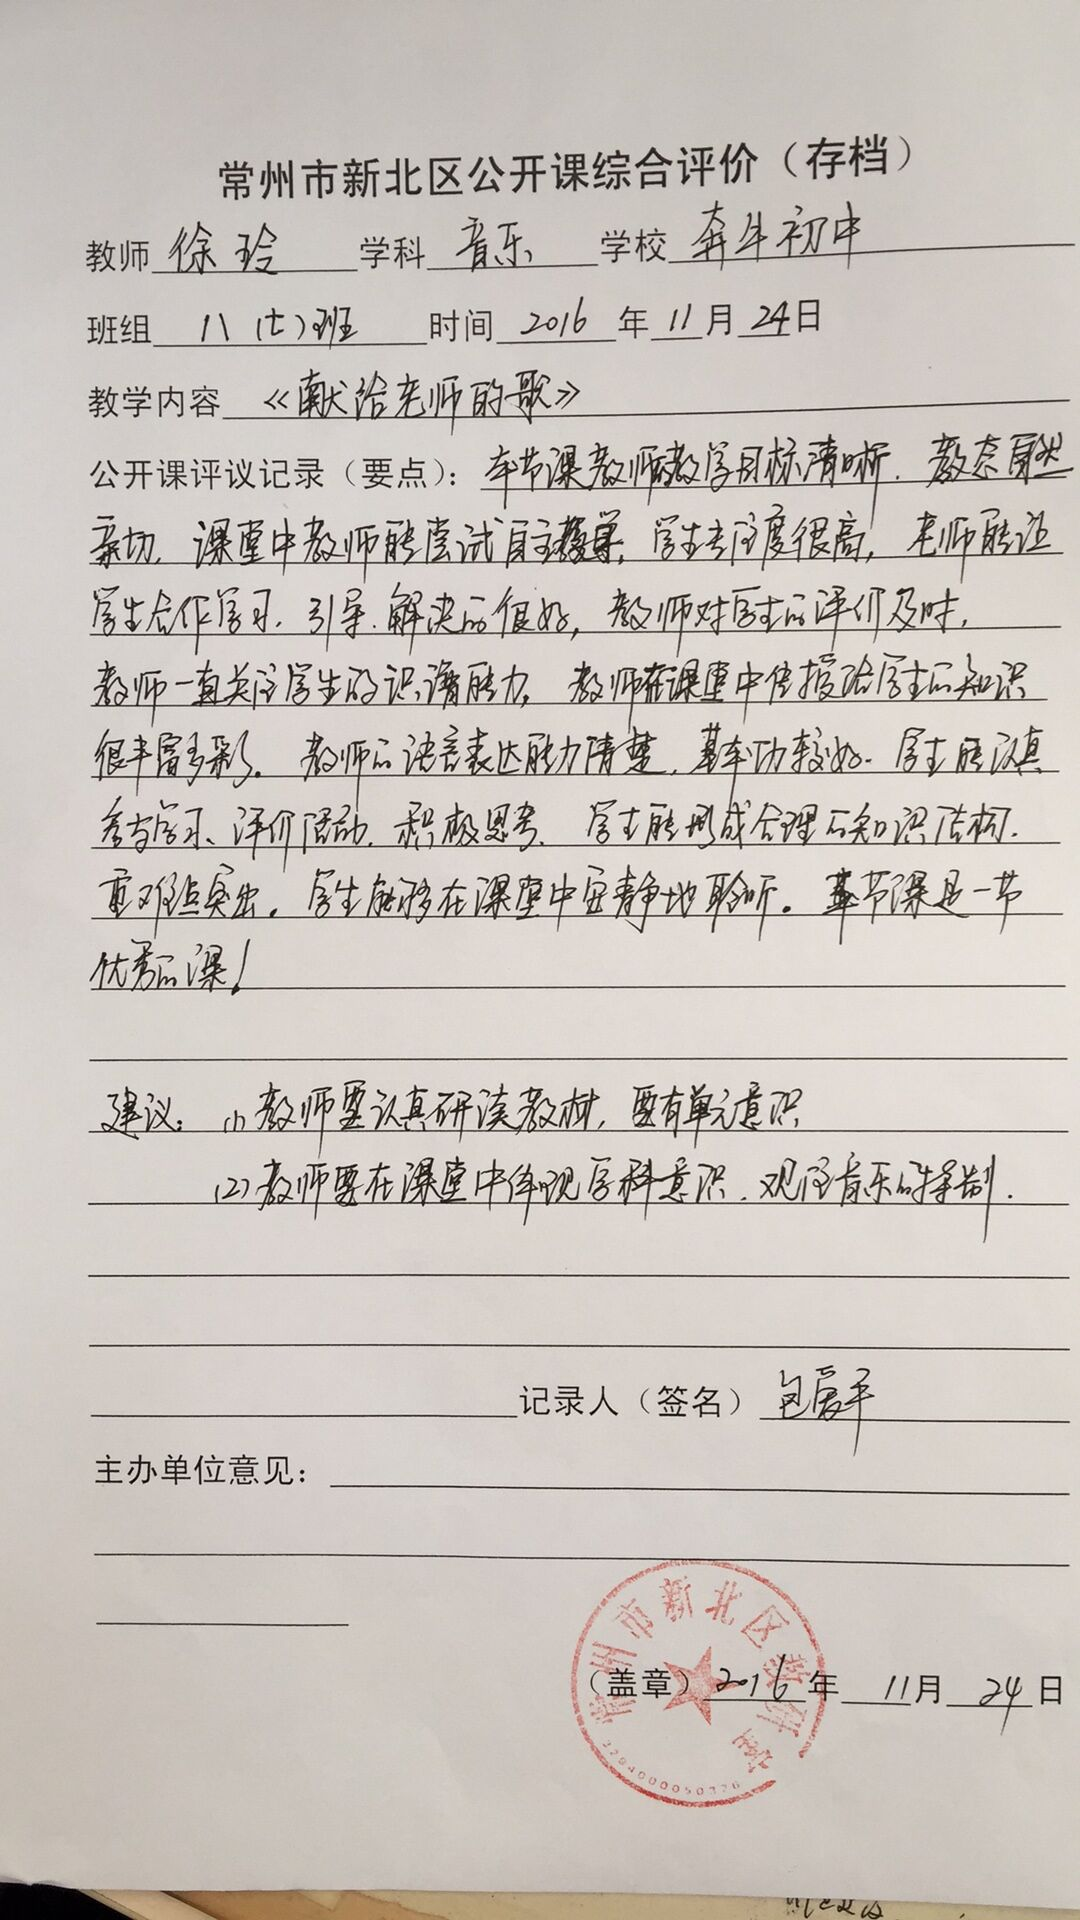 常州市新北区公开课综合评价（存档）
教师 徐玲 学科 音乐 学校 奔牛初中
班组 八（七）班 时间 2016 年 11 月 24 日
教学内容 《献给老师的歌》
公开课评议记录（要点）：本节课教师教学目标清晰．教态自然
亲切．课堂中教师能尝试自主，学生专注度很高，老师能让
学生合作学习、引导、解决的很好，教师对学生的评价及时，
教师一直关注学生的识谱能力，教师在课堂中传授给学生的知识
很丰富多彩。教师的语言表达能力清楚．基本功较好．学生能认真
参与学习、评价活动．积极思考、学生能形成合理的知识结构．
重难点突出。学生能够在课堂中安静地聆听。本节课是一节
优秀的课！
建议：(1)教师要认真研读教材，要有单元意识
(2)教师要在课堂中体现学科意识．音乐的
记录人（签名）包爱平
主办单位意见：
常州市新北区教研室
（盖章）2016 年 11 月 24 日